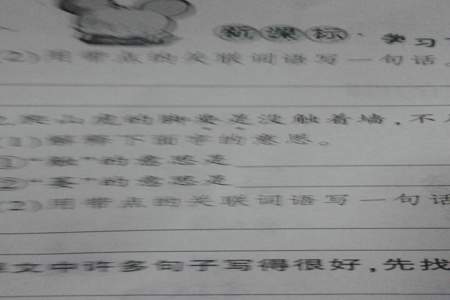 新课标·学习
(2)用带点的关联词语写一句话。
爬山虎的脚要是没触着墙,不
(1)解释下面字的意思。
①“触”的意思是
②“萎”的意思是
(2)用带点的关联词语写一句话
课文中许多句子写得很好,先找